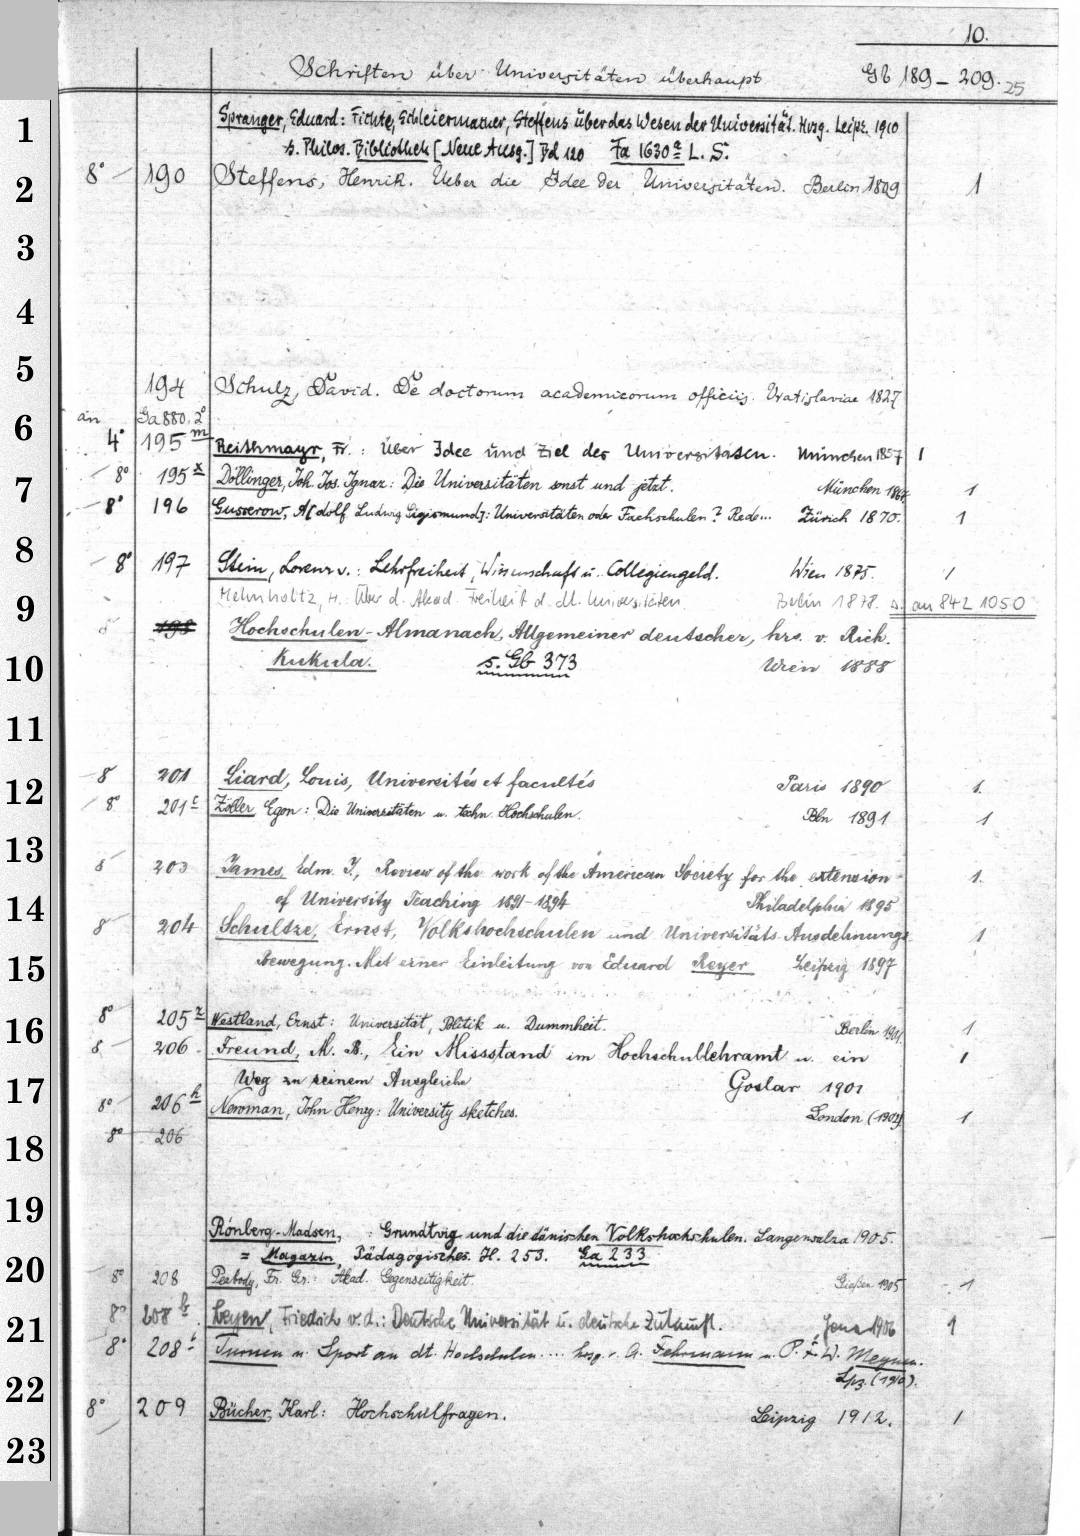 10.
Schriften über Universitäten überhaupt Gb 189 – 209. 25
1
Spranger, Eduard: Fichte, Schleiermacher, Steffens über das Wesen der Universität. Hrsg. Leipz. 1910
s. Philos. Bibliothek [Neue Ausg.] Bd 120 Fa 1630ª L. S.
2 8° 190 Steffens, Henrik. Ueber die Idee der Universitäten. Berlin 1809 1
3
4
5
194 Schulz, David. De doctorum academicorum officiis. Vratislaviae 1827
6 an Ga 880, 2°
4° 195 m Reithmayr, Fr.: Über Idee und Ziel der Universitäten. München 1857 1
7 8° 195 x Döllinger, Joh. Jos. Ignaz: Die Universitäten sonst und jetzt. München 1867 1
8° 196 Gusserow, A[dolf Ludwig Sigismund]: Universitäten oder Fachschulen? Rede... Zürich 1870. 1
8 8° 197 Stein, Lorenz v.: Lehrfreiheit, Wissenschaft u. Collegiengeld. Wien 1875. 1
9 Helmholtz, H. Über d. Akad. Freiheit d. dt. Universitäten. Berlin 1878. s. an 842 1050
8° 198 Hochschulen-Almanach, Allgemeiner deutscher, hrs. v. Rich.
10 Kukula. s. Gb 373 Wien 1888
11
12 8° 201 Liard, Louis, Universités et facultés Paris 1890 1.
8° 201 c Zöller Egon: Die Universitäten u. techn. Hochschulen. Bln 1891 1
13
8° 203 James, Edm. J., Review of the work of the American Society for the extension 1.
14 of University Teaching 1891–1894 Philadelphia 1895
8° 204 Schultze, Ernst, Volkshochschulen und Universitäts-Ausdehnungs- 1
15 bewegung. Mit einer Einleitung von Eduard Reyer Leipzig 1897
16 8° 205 z Westland, Ernst: Universität, Politik u. Dummheit. Berlin 1901 1
8° 206 Freund, M. B., Ein Missstand im Hochschullehramt u. ein 1
17 Weg zu seinem Ausgleiche Goslar 1901
8° 206 h Newman, John Henry: University sketches. London (1902) 1
18 8° 206
19
Rönberg-Madsen, : Grundtvig und die dänischen Volkshochschulen. Langensalza 1905.
= Magazin, Pädagogisches. H. 253. Ga 233
20 8° 208 Peabody, Fr. Gr.: Akad. Gegenseitigkeit. Gießen 1905 1
21 8° 208 h Leyen, Friedrich v. d.: Deutsche Universität u. deutsche Zukunft. Jena 1906 1
8° 208 i Turnen u. Sport an dt. Hochschulen .... hrsg. v. A. Fehrmann u. P. F. W. Meynen.
22 Lpz. (1910).
8° 209 Bücher, Karl: Hochschulfragen. Leipzig 1912. 1
23